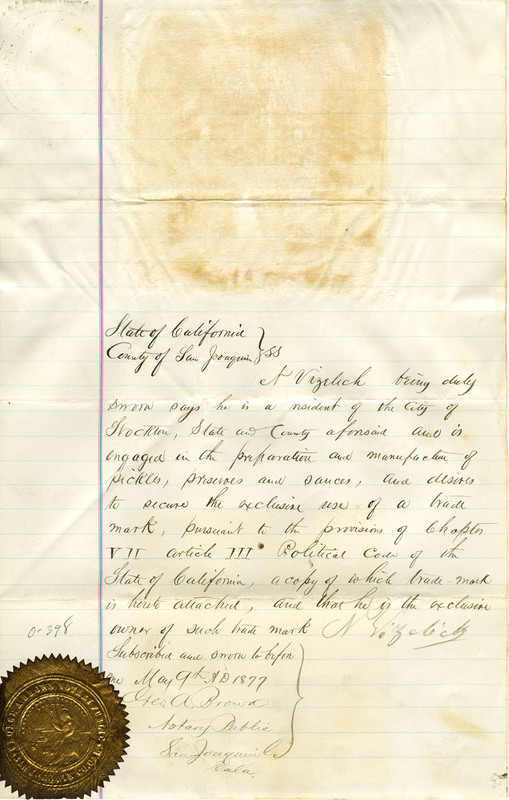 State of California }
County of San Joaquin } SS
N Vizelich being duly
sworn says he is a resident of the City of
Stockton, State and County aforesaid and is
engaged in the preparation and manufacture of
pickles, preserves and sauces, and desires
to secure the exclusive use of a trade
mark, pursuant to the provisions of Chapter
VII article III Political Code of the
State of California, a copy of which trade mark
is hereto attached, and that he is the exclusive
owner of such trade mark N Vizelich
0-398
Subscribed and sworn to before
me May 9th AD 1877
Geo A Brown
Notary Public
San Joaquin Co
Cala.